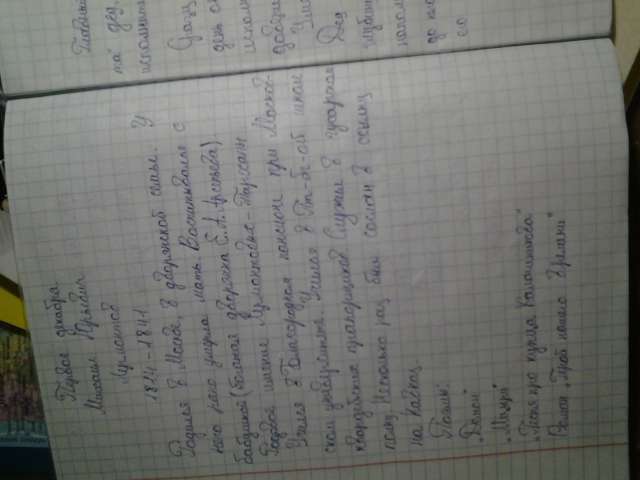 Первое декабря.
Михаил Юрьевич
Лермонтов
1814-1841
Родился в Москве, в дворянской семье. У
него рано умерла мать. Воспитывался с
бабушкой (богатая дворянка Е.А.Арсеньева).
Родовое имение Лермонтовых - Тарханы
Учился в Благородном пансионе при Москов-
ском университете. Учился в
гвардейских прапорщиков. Служил в гусарском
полку. Несколько раз был сослан в ссылку
на Кавказ
Поэмы:
"Демон"
"Мцыри"
"Песня про купца Калашникова"
Роман "Герой нашего времени"
дед.
исполнил
день
Дед
до